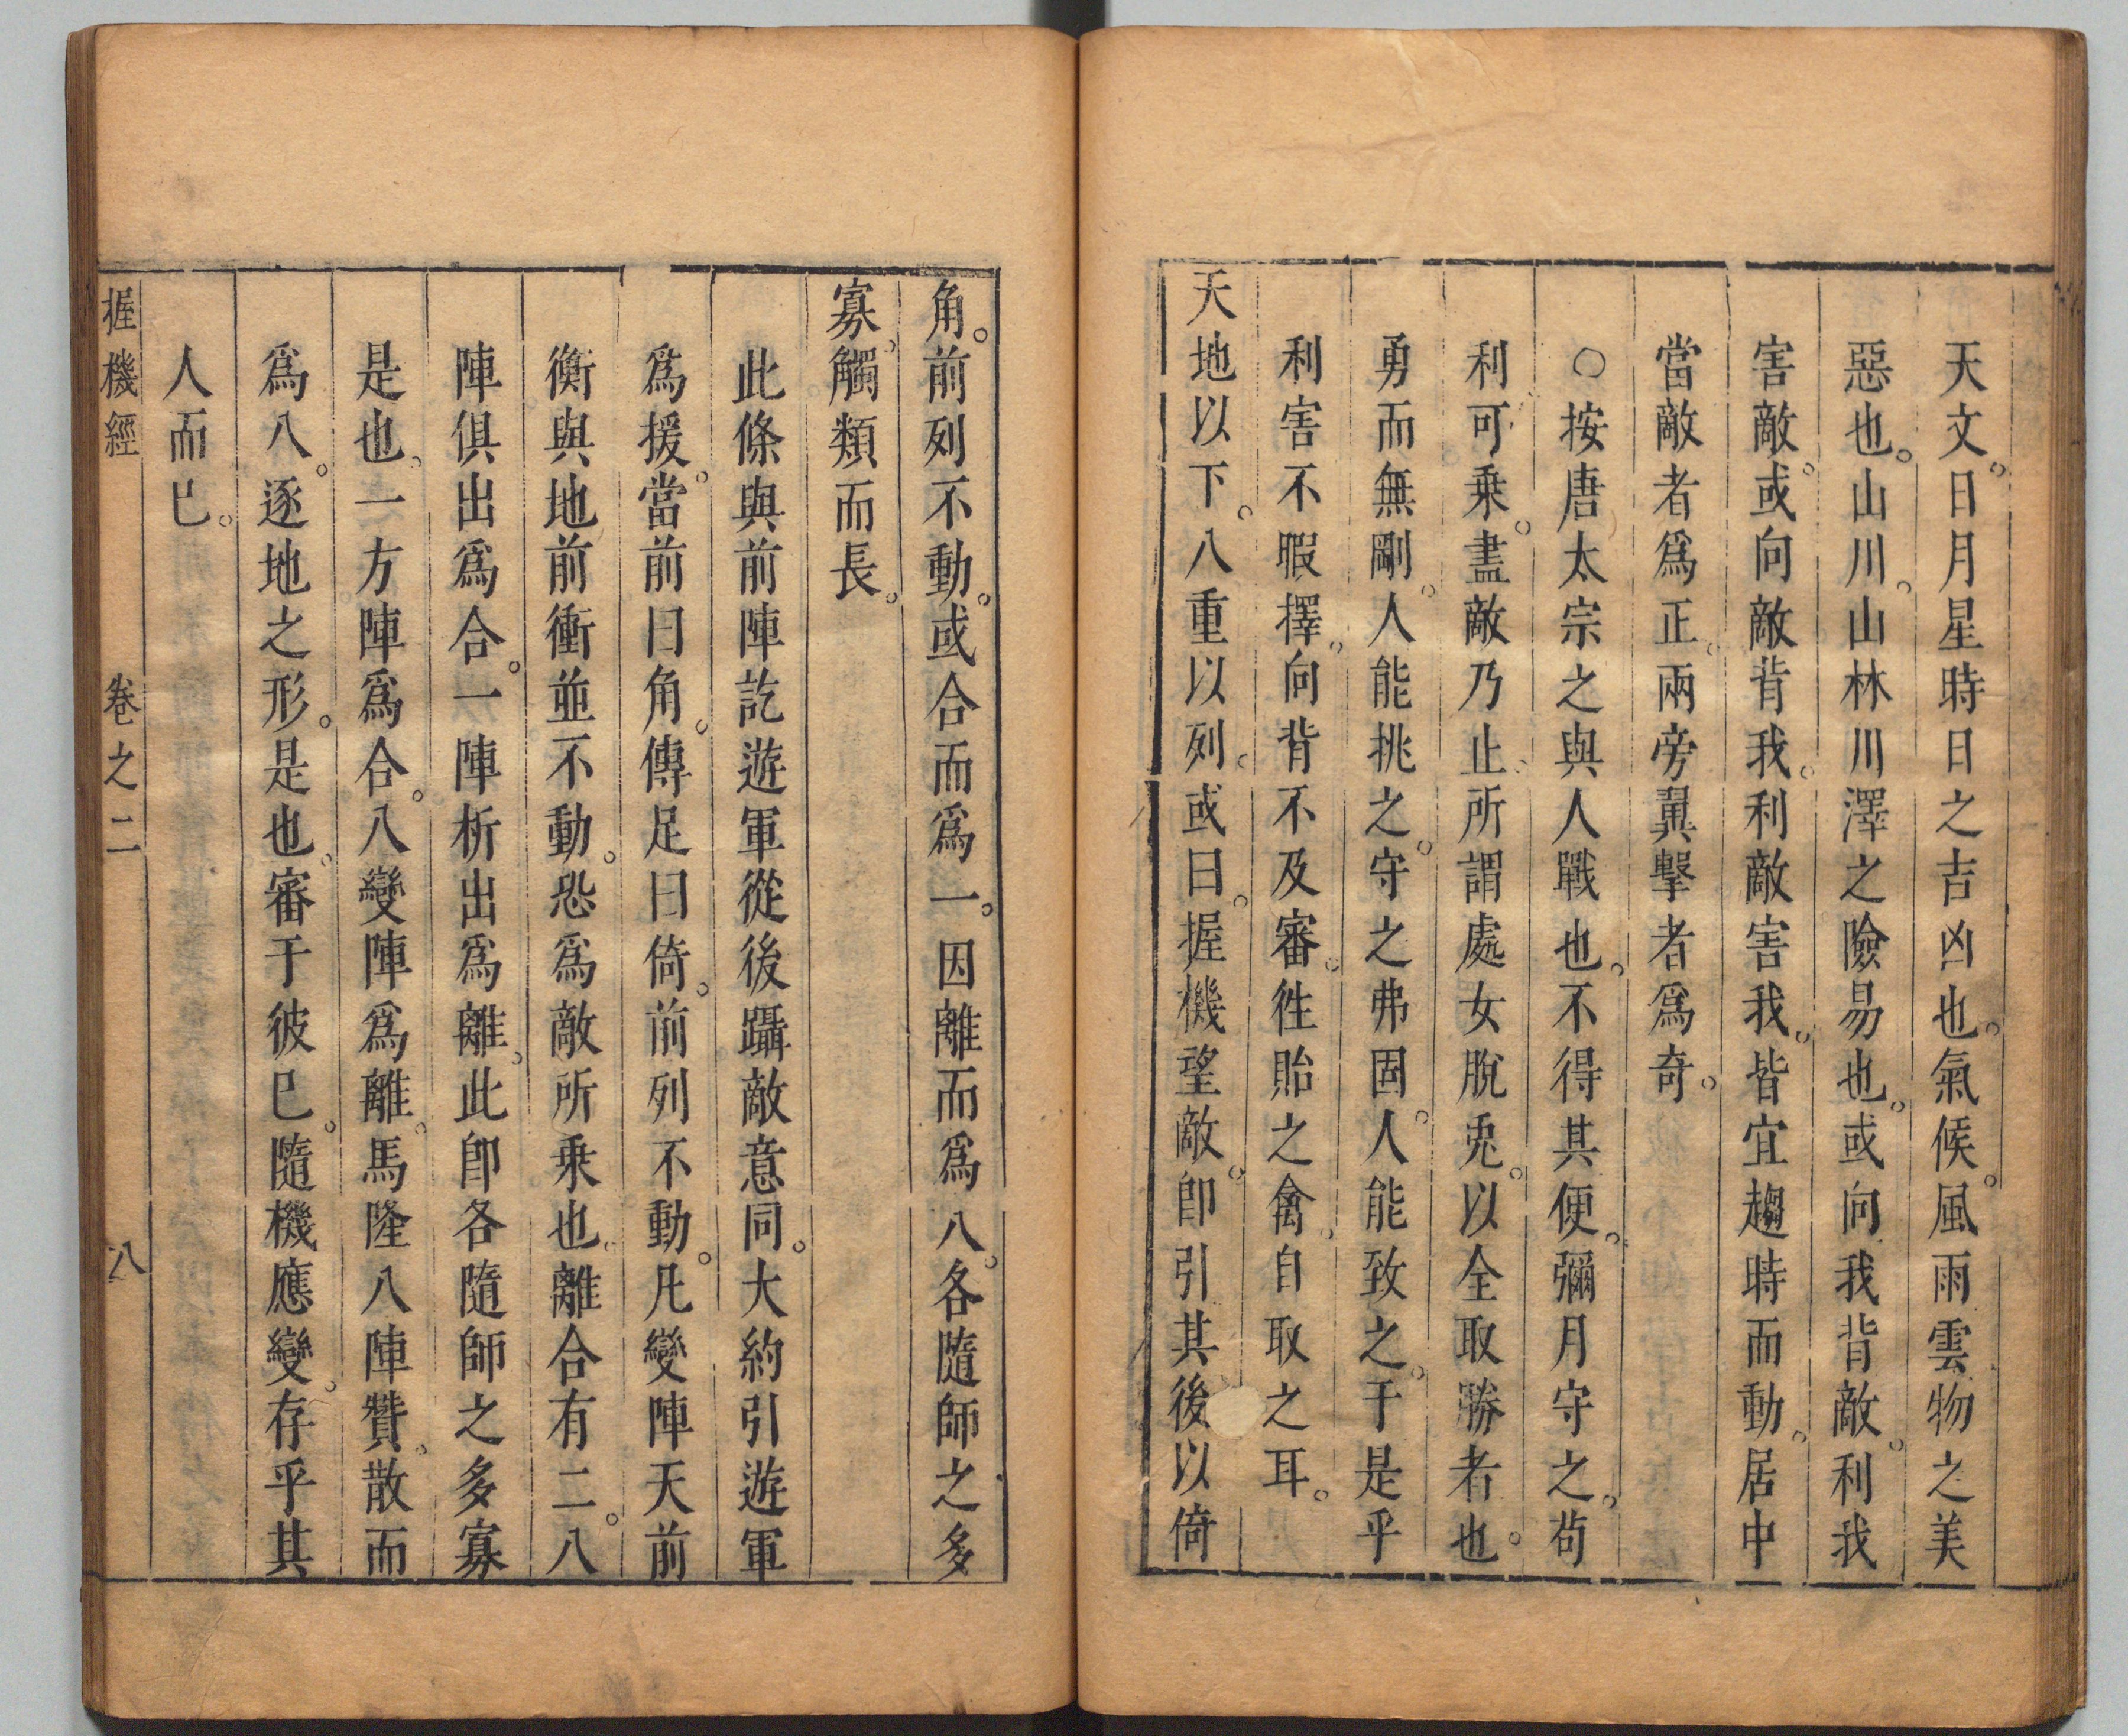 天文。日月星時日之吉凶也。氣候。風雨雲物之美
惡也。山川。山林川澤之險易也。或向我背敵。利我
害敵。或向敵背我。利敵害我。皆宜趨時而動。居中
當敵者爲正。兩旁翼擊者爲奇。
○按唐太宗之與人戰也。不得其便。彌月守之。苟
利可乗。盡敵乃止。所謂處女脫兎。以全取勝者也。
勇而無剛。人能挑之。守之弗固。人能致之。于是乎
利害不暇擇。向背不及審。徃貽之禽。自取之耳。
天地以下。八重以列。或曰。握機望敵。即引其後以倚
角。前列不動。或合而爲一。因離而爲八。各隨師之多
寡。觸類而長。
此條與前陣訖遊軍從後躡敵意同。大約引遊軍
爲援。當前曰角。傳足曰倚。前列不動。凡變陣天前
衡與地前衝並不動。恐爲敵所乗也。離合有二。八
陣俱出爲合。一陣析出爲離。此即各隨師之多寡
是也。一方陣爲合。八變陣爲離。馬隆八陣贊。散而
爲八。逐地之形。是也。審于彼已。隨機應變。存乎其
人而已。
握機經 卷之二 八